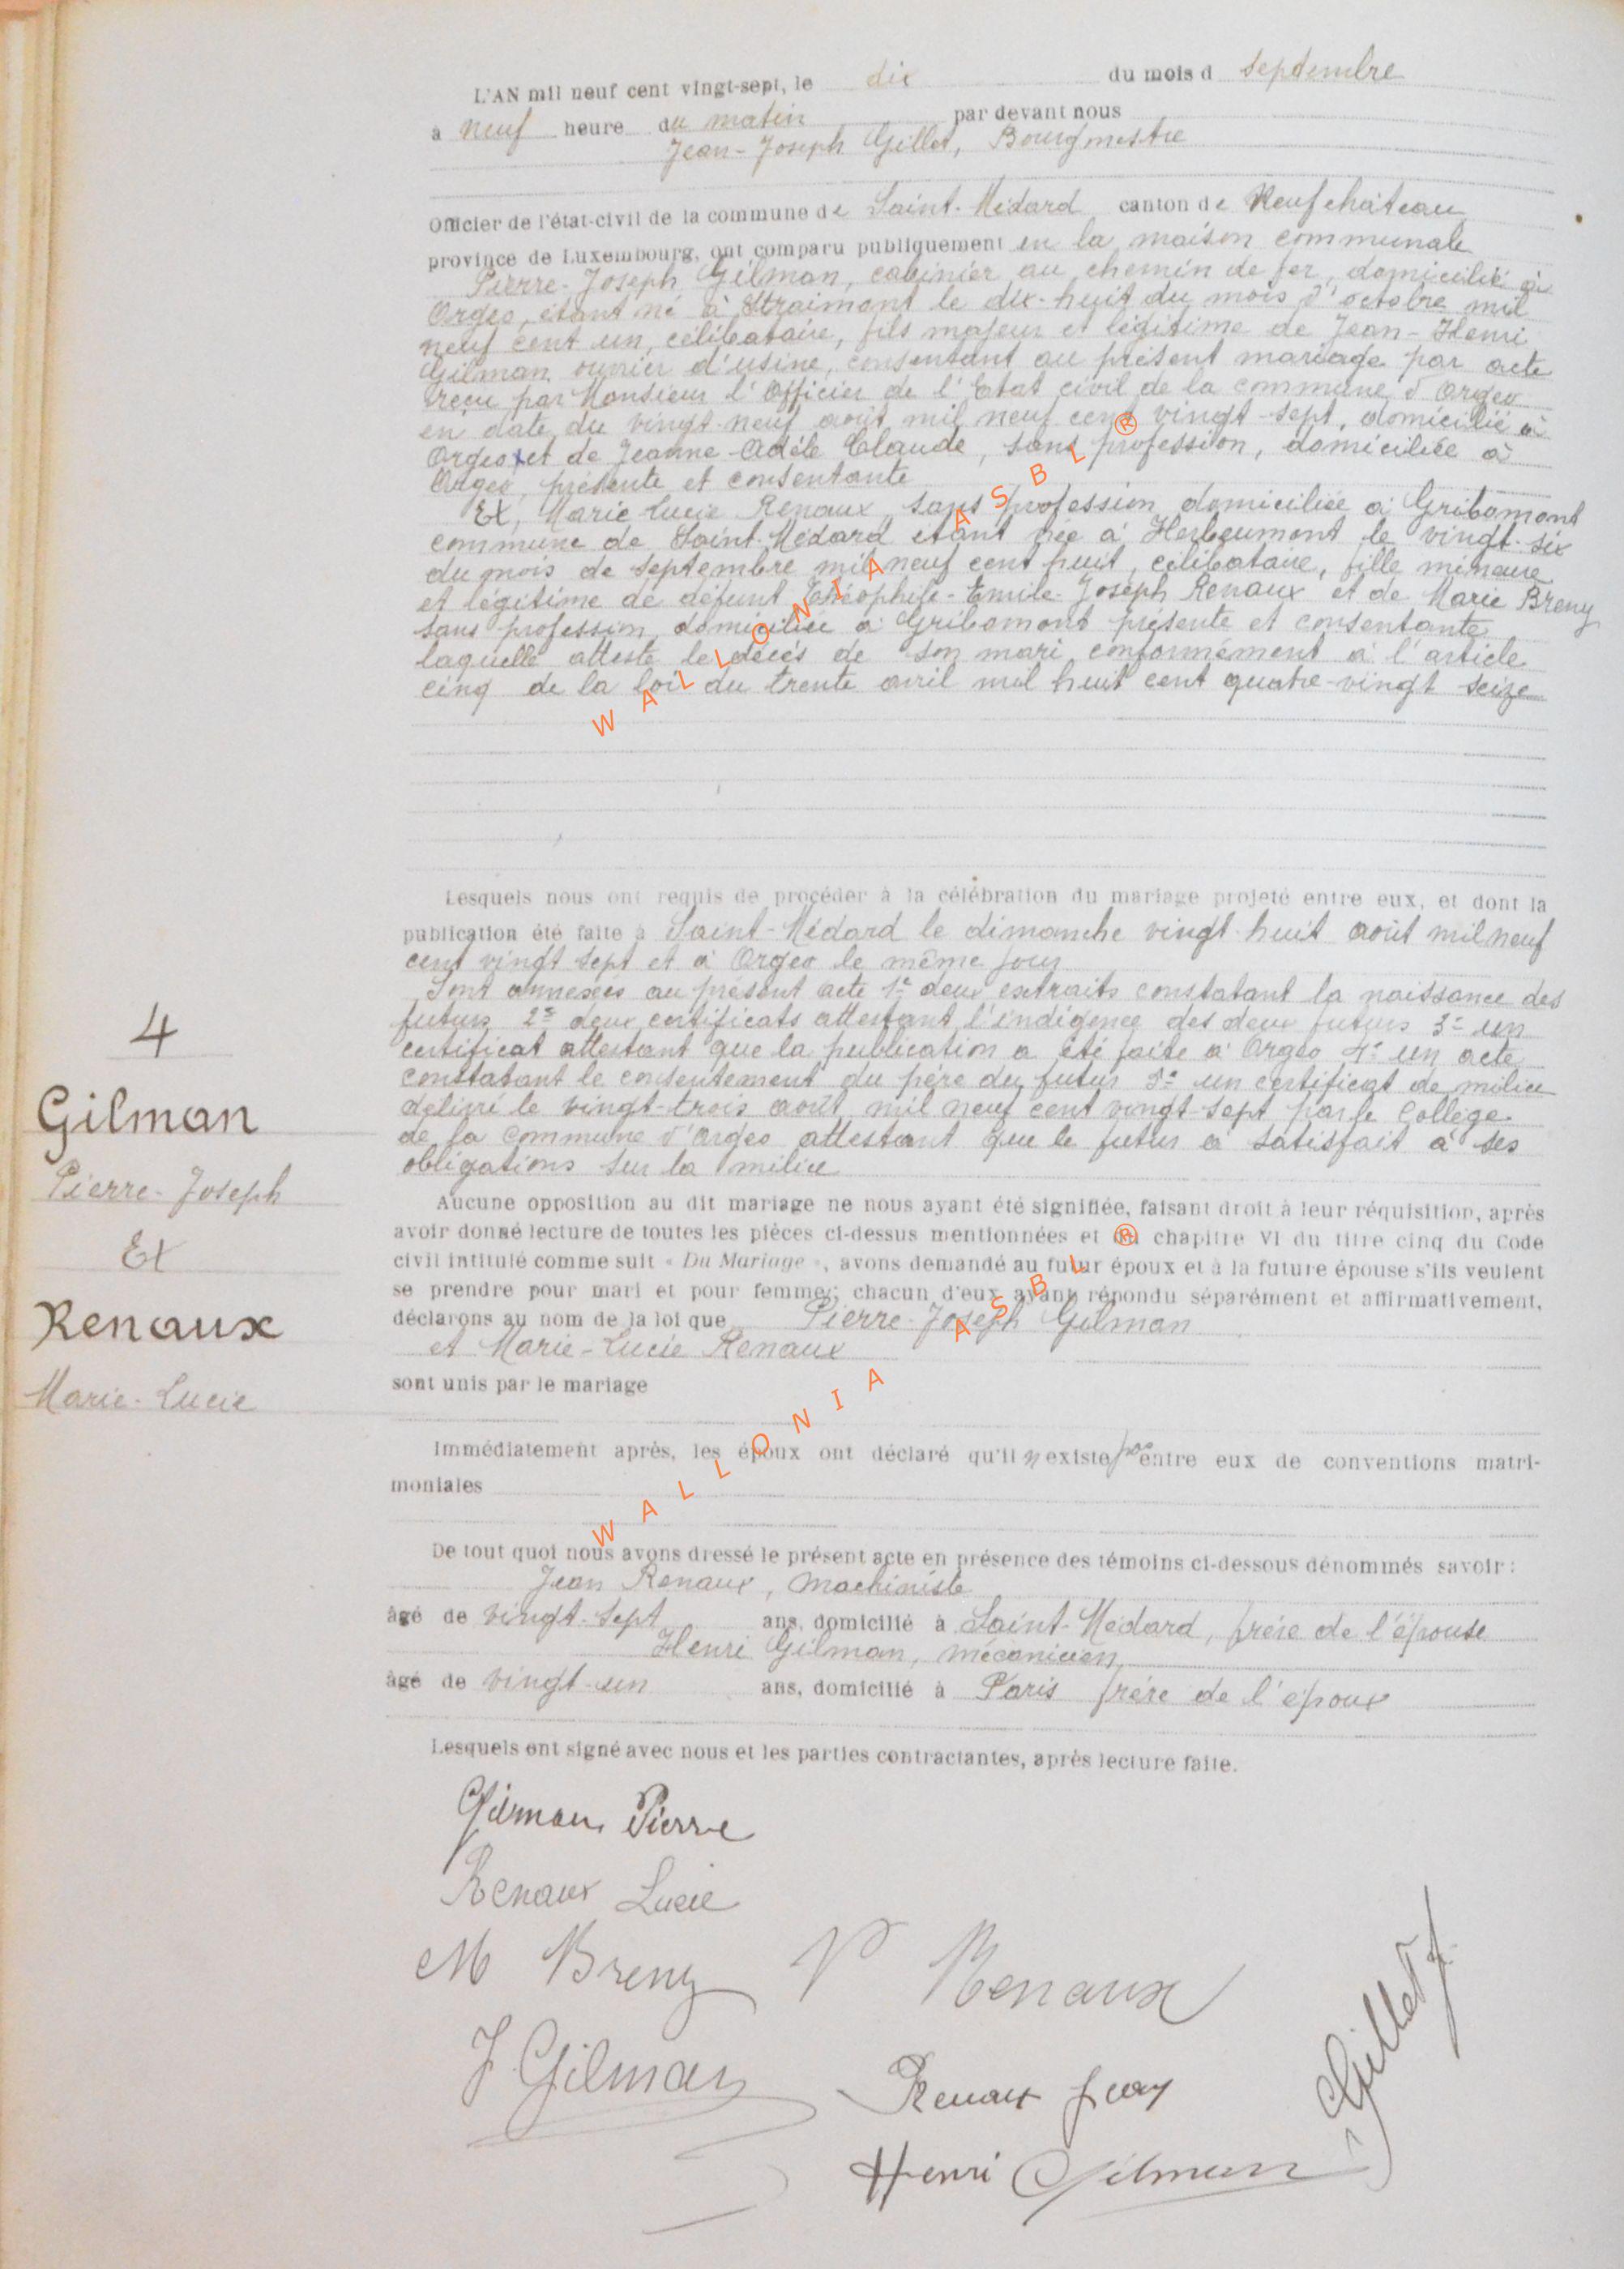 L'AN mil neuf cent vingt-sept, le dix du mois d septembre
à neuf heure du matin par devant nous
Jean-Joseph Gillet, Bourgmestre
Officier de l'état-civil de la commune de Saint-Médard canton de Neufchâteau
province de Luxembourg, ont comparu publiquement en la maison communale
Pierre-Joseph Gilman, cabinier au chemin de fer, domicilié à
Orgeo, étant né à Straimont le dix-huit du mois d'octobre mil
neuf cent un, célibataire, fils majeur et légitime de Jean-Henri
Gilman ouvrier d'usine, consentant au présent mariage par acte
reçu par Monsieur l'Officier de l'Etat civil de la commune d'Orgeo
en date du vingt-neuf août mil neuf cent vingt-sept, domicilié à
Orgeo et de Jeanne-Adèle Claude, sans profession, domiciliée à
Orgeo, présente et consentante
Et, Marie Lucie Renaux, sans profession domiciliée à Gribomont
commune de Saint-Médard étant née à Herbeumont le vingt-six
du mois de septembre mil neuf cent huit, célibataire, fille mineure
et légitime de défunt Théophile-Emile-Joseph Renaux et de Marie Breny
sans profession domiciliée à Gribomont présente et consentante
laquelle atteste le décès de son mari conformément à l'article
cinq de la loi du trente avril mil huit cent quatre-vingt seize
WALLONIA ASBL ®
Lesquels nous ont requis de procéder à la célébration du mariage projeté entre eux, et dont la
publication été faite à Saint-Médard le dimanche vingt-huit août mil neuf
cent vingt sept et à Orgeo le même jour
Sont annexées au présent acte 1° deux extraits constatant la naissance des
futurs 2° deux certificats attestant l'indigence des deux futurs 3° un
certificat attestant que la publication a été faite à Orgeo 4° un acte
constatant le consentement du père du futur 5° un certificat de milice
délivré le vingt-trois août mil neuf cent vingt-sept par le Collège
de la commune d'Orgeo attestant que le futur a satisfait à ses
obligations sur la milice
4
Gilman
Pierre-Joseph
Et
Renaux
Marie-Lucie
Aucune opposition au dit mariage ne nous ayant été signifiée, faisant droit à leur réquisition, après
avoir donné lecture de toutes les pièces ci-dessus mentionnées et du chapitre VI du titre cinq du Code
civil intitulé comme suit « Du Mariage », avons demandé au futur époux et à la future épouse s'ils veulent
se prendre pour mari et pour femme; chacun d'eux ayant répondu séparément et affirmativement,
déclarons au nom de la loi que Pierre-Joseph Gilman
et Marie-Lucie Renaux
sont unis par le mariage
Immédiatement après, les époux ont déclaré qu'il n'existe pas entre eux de conventions matri-
moniales
WALLONIA ASBL ®
De tout quoi nous avons dressé le présent acte en présence des témoins ci-dessous dénommés savoir :
Jean Renaux, machiniste
âgé de vingt-sept ans, domicilié à Saint-Médard, frère de l'épouse
Henri Gilman, mécanicien,
âgé de vingt-un ans, domicilié à Paris frère de l'époux
Lesquels ont signé avec nous et les parties contractantes, après lecture faite.
Gilman Pierre
Renaux Lucie
M Breny V Renaux
J. Gilman Renaux Jean
Henri Gilman
Gillet J